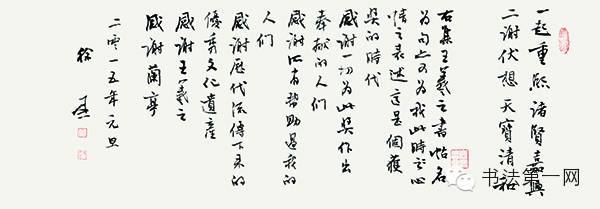 一起重熙諸賢嘉興
二謝伏想天寶清和
右集王羲之書帖名
为句上可为我此時之心
情之表述这是個獲
奖的時代
感謝一切为此奖作出
奉献的人们
感謝所有幫助過我的
人们
感謝歷代流傳下来的
優秀文化遺產
感謝王羲之
感謝蘭亭
二零一五年元旦
徐
书法第一网